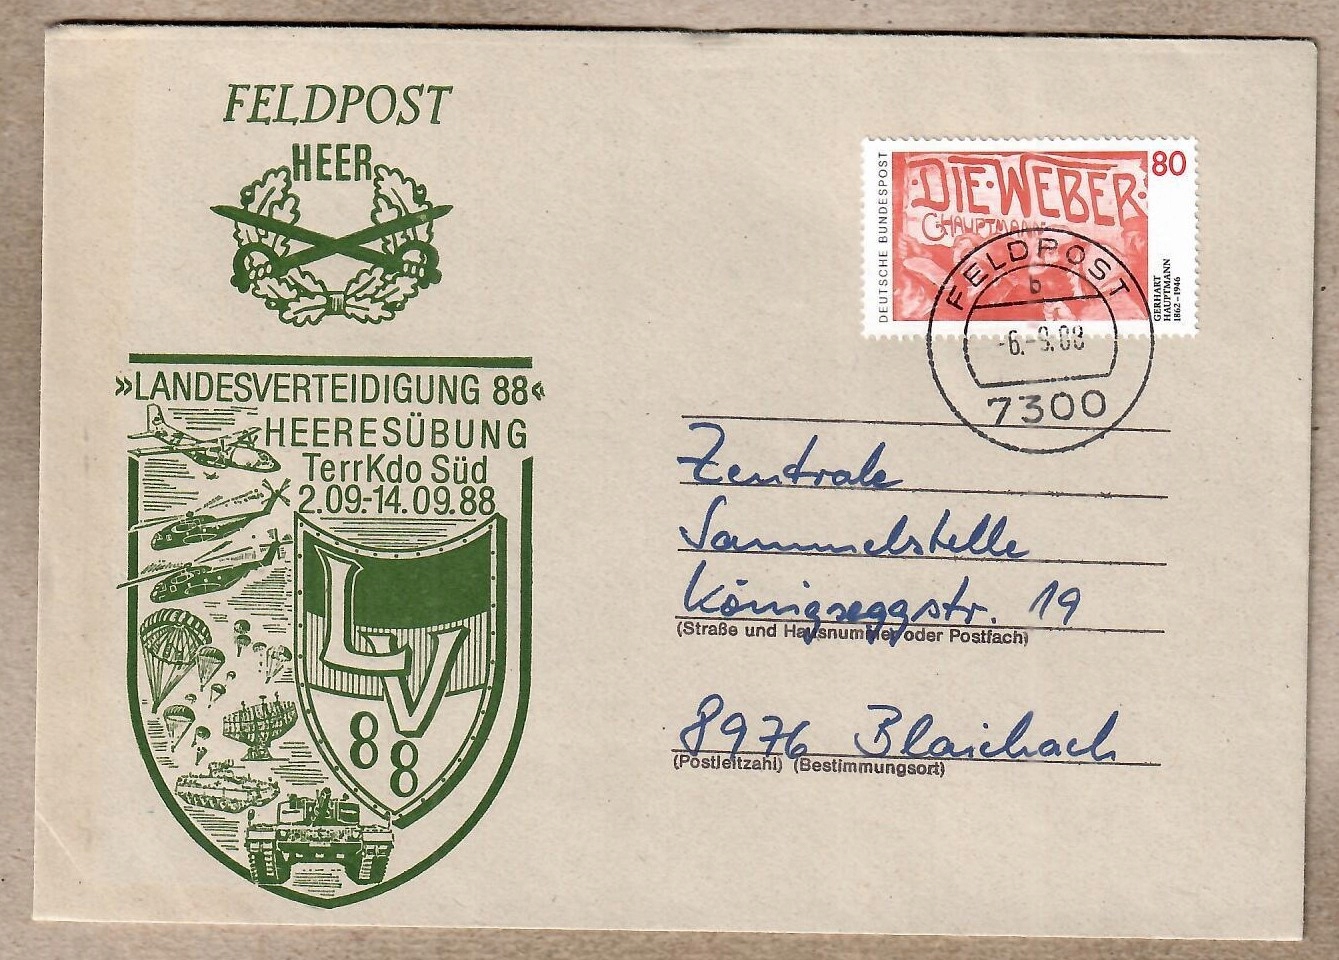 FELDPOST
HEER
»LANDESVERTEIDIGUNG 88«
HEERESÜBUNG
TerrKdo Süd
2.09.-14.09.88
LV
88
DEUTSCHE BUNDESPOST
DIE·WEBER·
G·HAUPTMANN
80
GERHART
HAUPTMANN
1862–1946
FELDPOST
b
-6.-9.88
7300
Zentrale
Sammelstelle
Königseggstr. 19
(Straße und Hausnummer oder Postfach)
8976 Blaichach
(Postleitzahl) (Bestimmungsort)